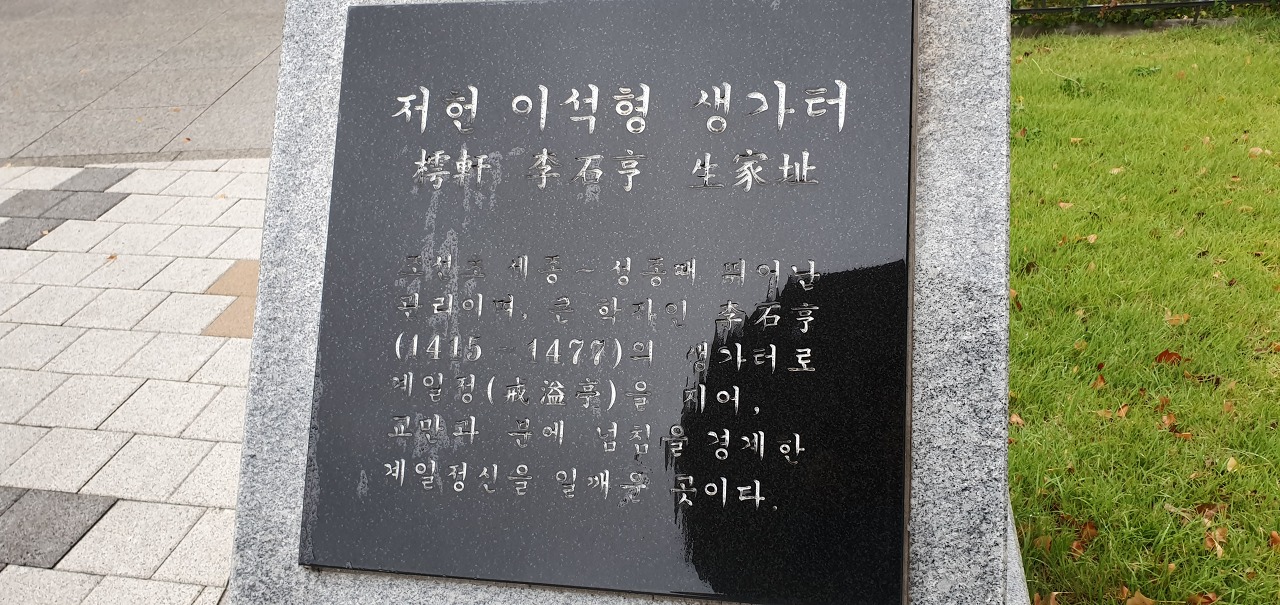 저헌 이석형 생가터
樗軒 李石亨 生家址
조선초 세종~성종때 뛰어난
관리이며, 큰 학자인 李石亨
(1415~1477)의 생가터로
계일정(戒溢亭)을 지어,
교만과 분에 넘침을 경계한
계일정신을 일깨운 곳이다.